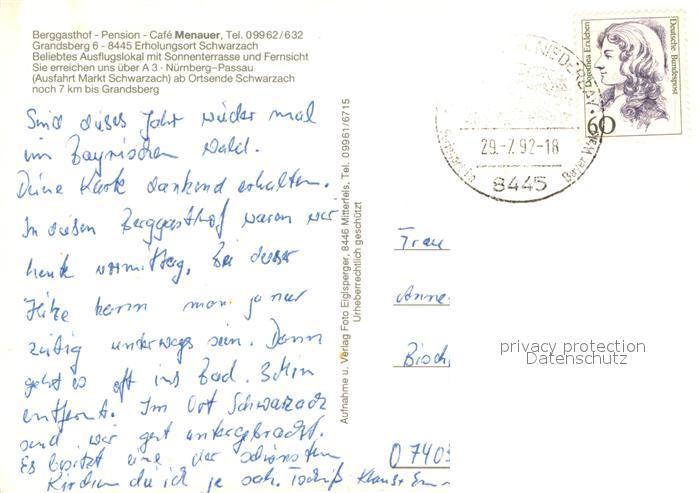 Berggasthof - Pension - Café Menauer, Tel. 09962/632
Grandsberg 6 - 8445 Erholungsort Schwarzach
Beliebtes Ausflugslokal mit Sonnenterrasse und Fernsicht
Sie erreichen uns über A 3 · Nürnberg–Passau
(Ausfahrt Markt Schwarzach) ab Ortsende Schwarzach
noch 7 km bis Grandsberg
Sind dieses Jahr wieder mal
im Bayrischen Wald.
Deine Karte dankend erhalten.
In diesem Berggasthof waren wir
heute vormittag. Bei dieser
Hitze kann man ja nur
zeitig unterwegs sein. Dann
geht es oft ins Bad. 3 km
entfernt. Im Ort Schwarzach
sind wir gut untergebracht.
Es besitzt eine der schönsten
Kirchen die ich je sah. Tschüß Klaus +
Aufnahme u. Verlag Foto Eiglsperger, 8446 Mitterfels, Tel. 09961/6715
Urheberrechtlich geschützt
NIEDERBAY.
29.-7.92-18
8445
Bayer Wald
Deutsche Bundespost
Dorothea Erxleben
60
Frau
Anne
Bisch
O 7403
privacy protection
Datenschutz